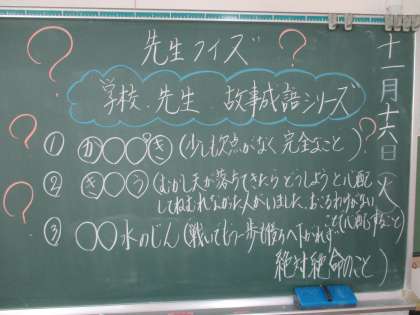 先生クイズ
学校.先生. 故事成語シリーズ
① か○○○き (少しも欠点がなく完全なこと)
② き○う (むかし天が落ちてきたらどうしようと心配
してねむれなかった人がいました。おこるわけがない
ことを心配すること)
③ ○○水のじん (戦いでもう一歩も後ろへ下がれず…
絶対絶命のこと)
十一月十六日(火)